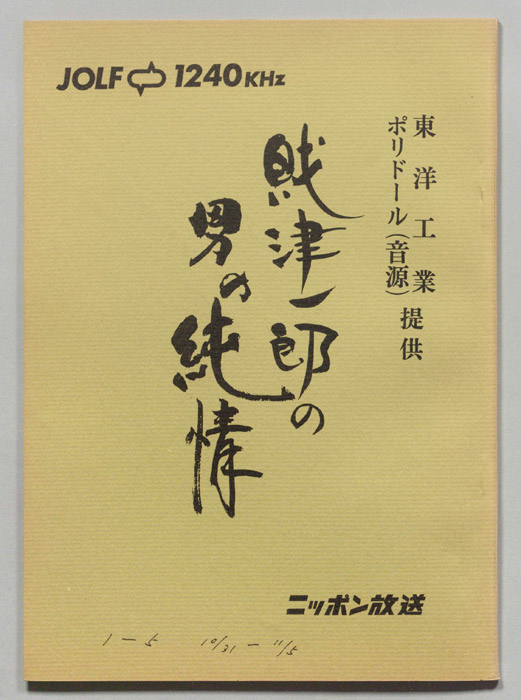 JOLF 1240KHz
東洋工業
ポリドール(音源) 提供
財津一郎の
男の純情
ニッポン放送
1-5 10/31-11/5